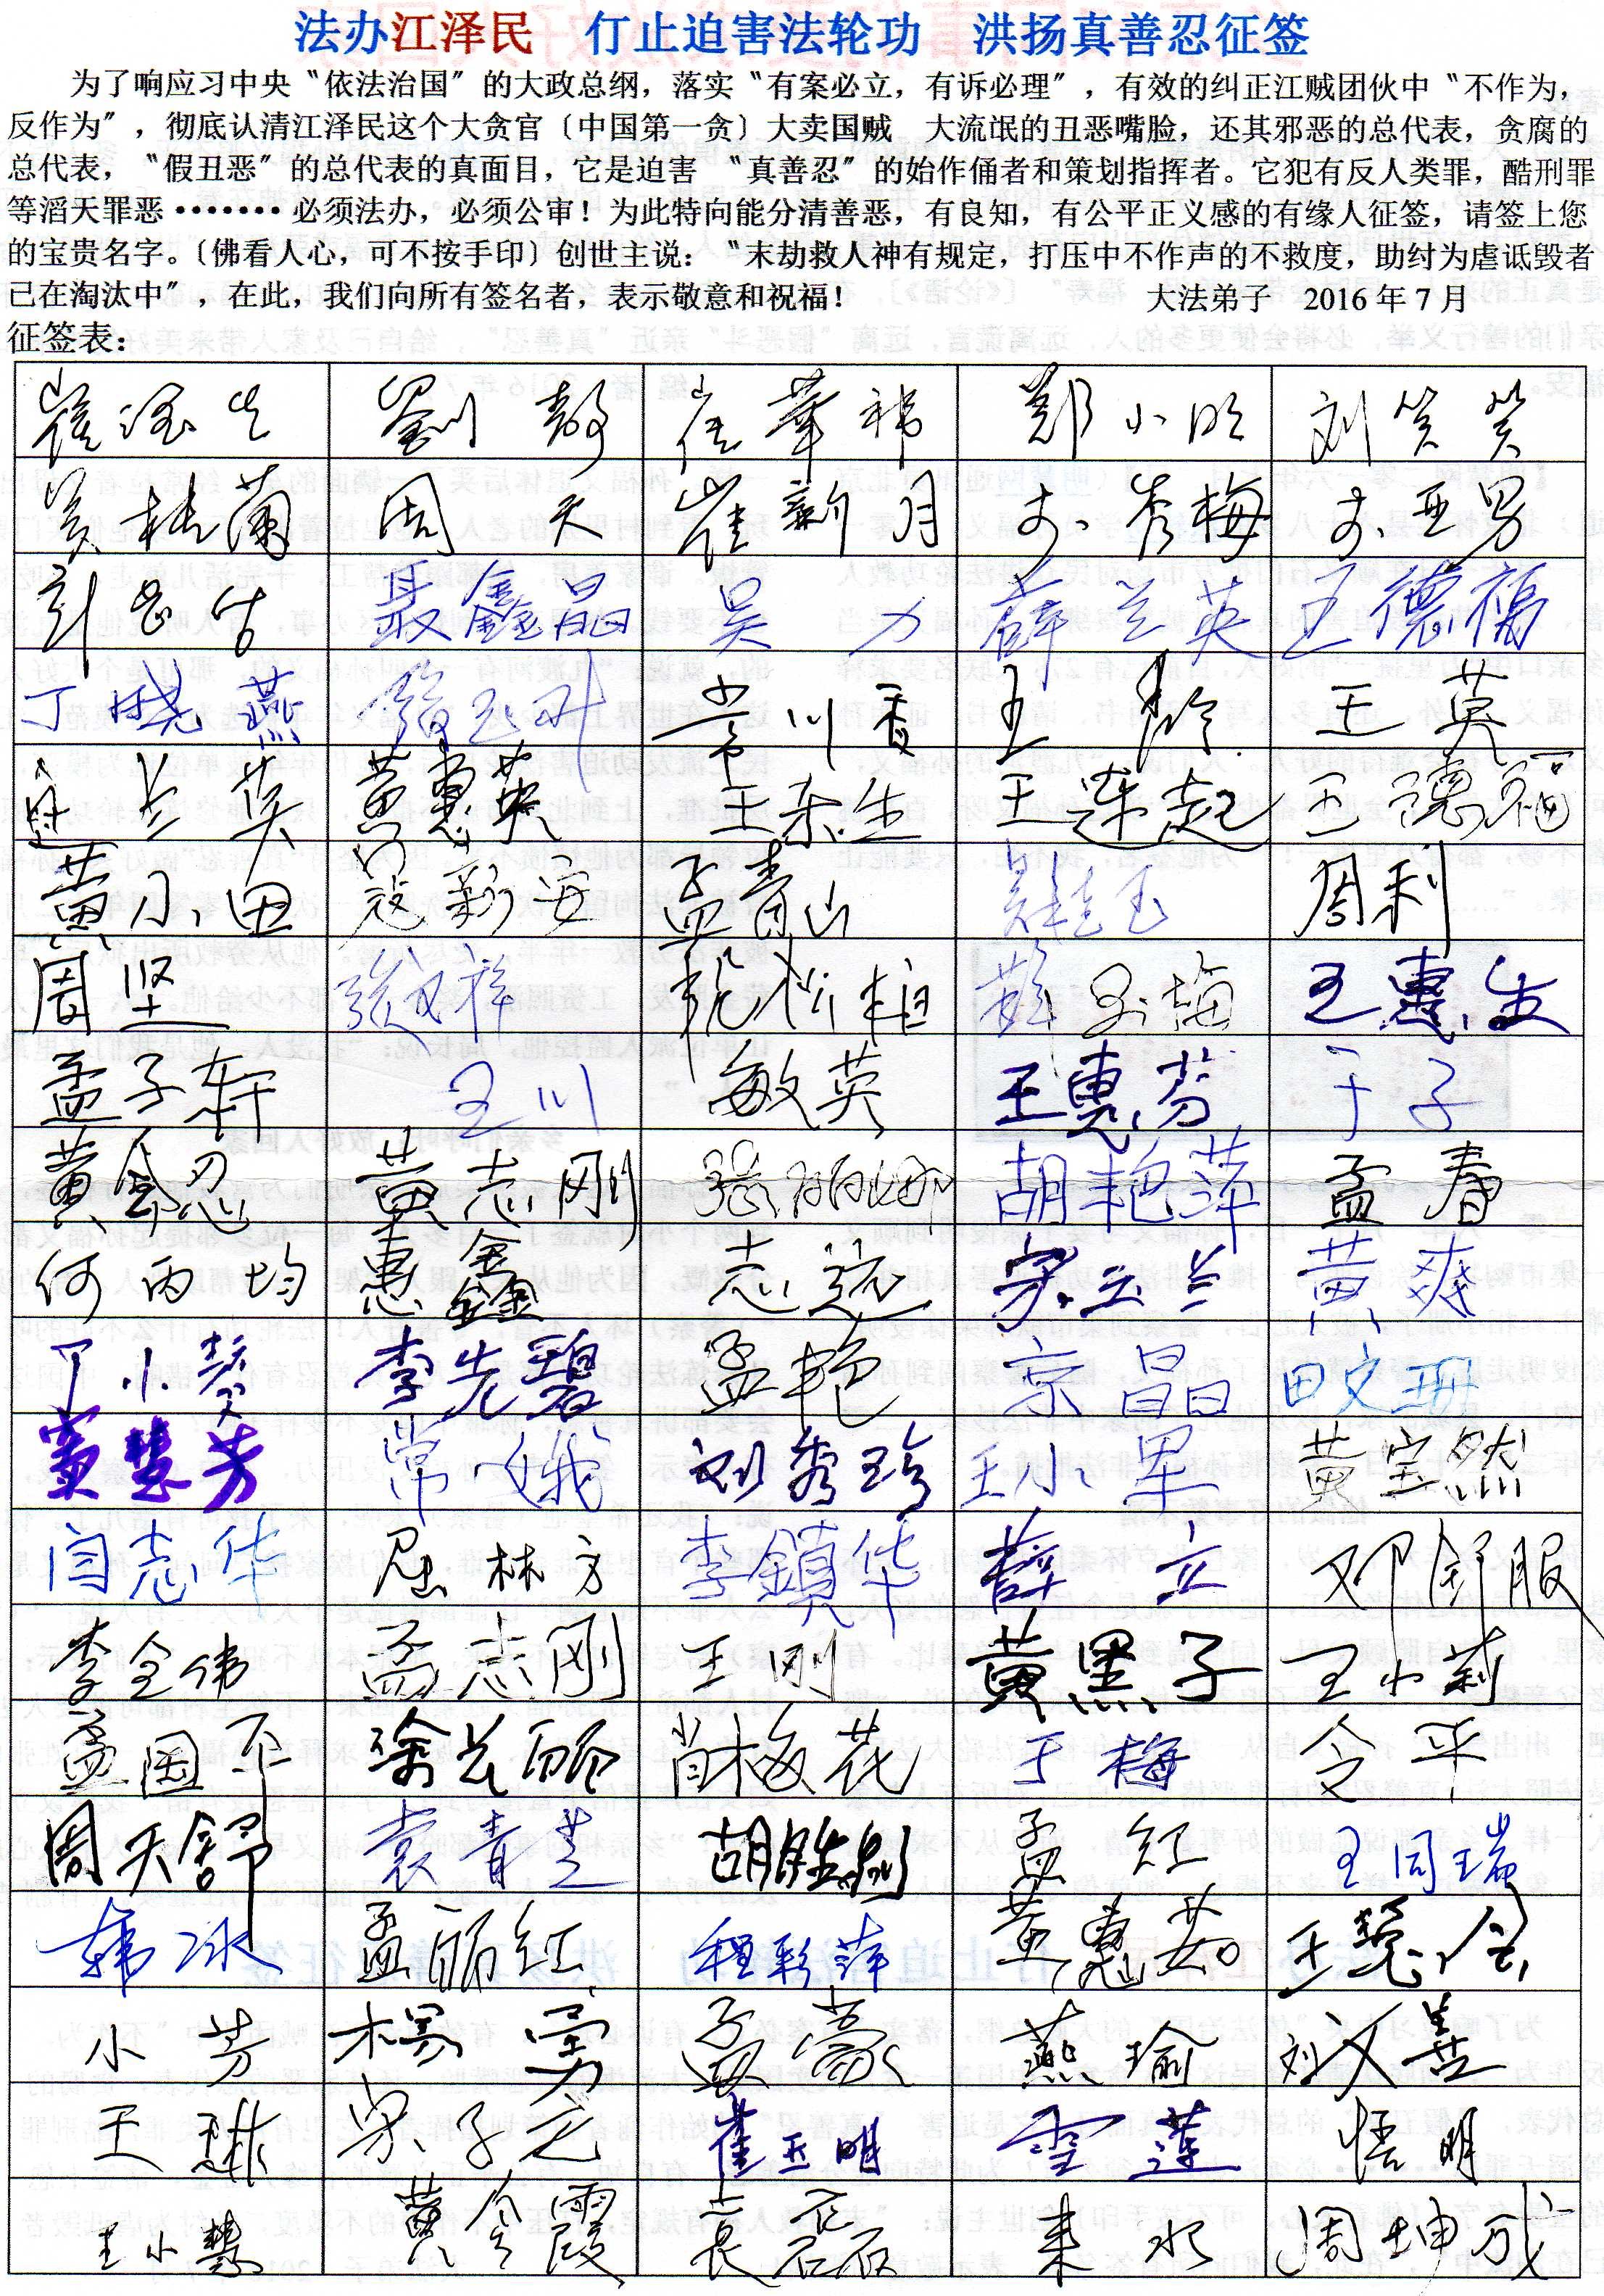 法办江泽民　仃止迫害法轮功　洪扬真善忍征签
为了响应习中央“依法治国”的大政总纲，落实“有案必立，有诉必理”，有效的纠正江贼团伙中“不作为，
反作为”，彻底认清江泽民这个大贪官〔中国第一贪〕大卖国贼　大流氓的丑恶嘴脸，还其邪恶的总代表，贪腐的
总代表，“假丑恶”的总代表的真面目，它是迫害　“真善忍”的始作俑者和策划指挥者。它犯有反人类罪，酷刑罪
等滔天罪恶·······必须法办，必须公审！为此特向能分清善恶，有良知，有公平正义感的有缘人征签，请签上您
的宝贵名字。〔佛看人心，可不按手印〕创世主说：“末劫救人神有规定，打压中不作声的不救度，助纣为虐诋毁者
已在淘汰中”，在此，我们向所有签名者，表示敬意和祝福！　大法弟子　2016年7月
征签表：
郑小明
吴桂兰 周天 崔新月 李秀梅 李亚男
聂鑫晶 吴力 薛兰英 王德福
丁晓燕 常川香 王玲 王英
黄惠英 王东生 王莲起 王德福
黄小田 寇新安 孟青山 周利
周坚 王惠生
孟子轩 王川 敏英 王惠芬 于子
黄会忍 黄志刚 张丽娜 胡艳萍 孟春
何丙均 惠鑫 志远 宋玉兰 黄爽
丁小琴 李先碧 孟艳 京晶 田文珊
窦慧芳 常娥 刘秀珍 王小军 黄宝然
闫志华 屈林方 李鎮华 薛立 邓舒服
李全伟 孟志刚 王刚 黄黑子 王小莉
孟国平 徐兰丽 肖梅花 于梅 令平
周天舒 袁青芝 胡胜利 孟红 王同瑞
韩冰 孟丽红 程彩萍 黄惠茹
小芳 楊勇 孟豪 燕瑜 刘义善
王琳 宋子元 崔玉明 雪莲 悟明
王小慧 黄金霞 袁磊 来水 周坤成